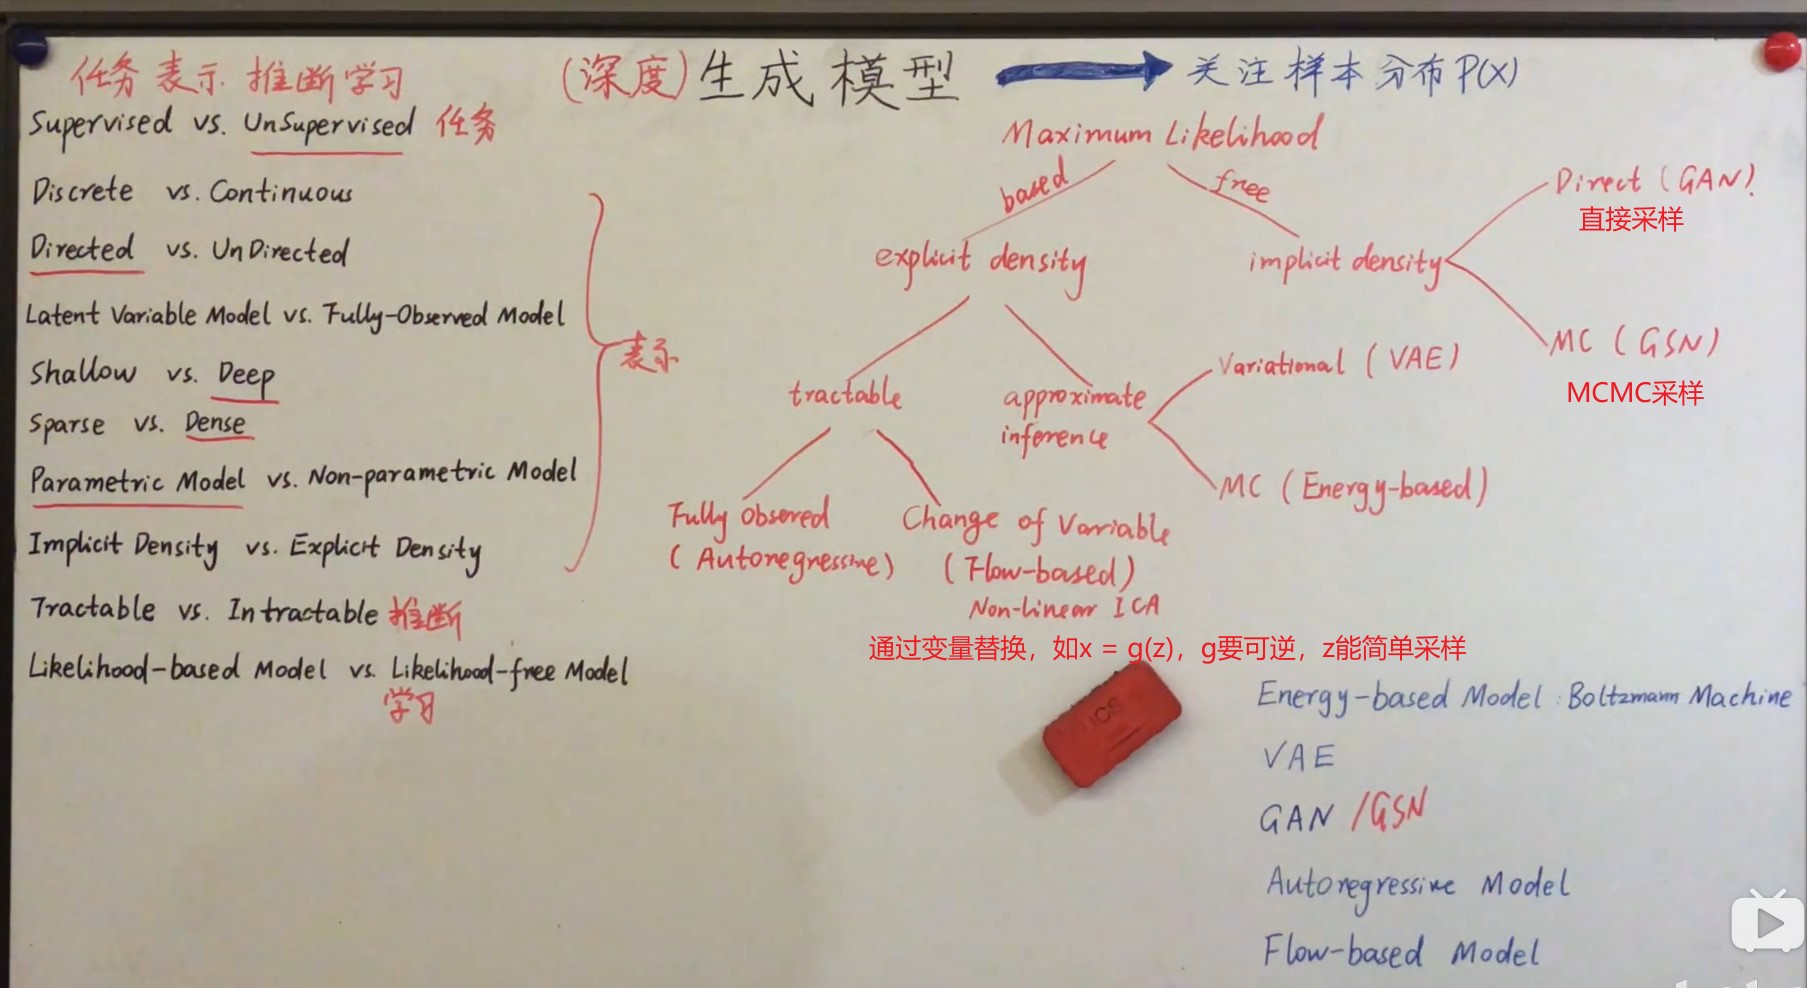 任务 表示 推断 学习
(深度) 生成 模型 → 关注 样本 分布 P(X)
Supervised vs. UnSupervised 任务
Discrete vs. Continuous
Directed vs. UnDirected
Latent Variable Model vs. Fully-Observed Model
Shallow vs. Deep
Sparse vs. Dense
Parametric Model vs. Non-parametric Model
Implicit Density vs. Explicit Density
表示
Tractable vs. Intractable 推断
Likelihood-based Model vs. Likelihood-free Model
学习
Maximum Likelihood
based
free
explicit density
implicit density
Direct (GAN)
直接采样
MC (GSN)
MCMC采样
tractable
approximate
inference
Variational (VAE)
MC (Energy-based)
Fully Obsered
(Autoregressive)
Change of Variable
(Flow-based)
Non-linear ICA
通过变量替换，如x = g(z)，g要可逆，z能简单采样
Energy-based Model : Boltzmann Machine
VAE
GAN /GSN
Autoregressive Model
Flow-based Model